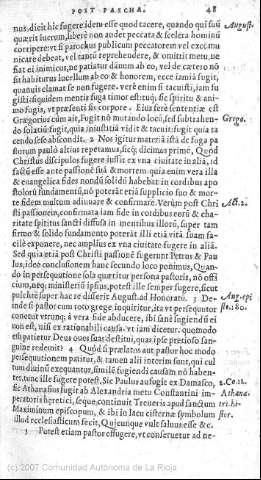 POST PASCHA. 48
nus, dicit hîc fugere idem esse quod tacere, quando qui suũ
quærit lucrum, liberè non audet peccata & scelera hominũ
corripere: vt si parochus publicum peccatorem vel excõmu
nicare debeat, vel tantũ reprehendere, & omittit metu, ne
fiat ei inimicus, ne patiatur damnũ ab eo, vel de cætero nõ
sit habiturus lucellum ab eo & honorem, ecce iam is fugit,
quamuis clamat se non fugere. veni enim si tacuisti, iam fu
gisti: siquidem mentis fuga timor est: tuq; sic spiritu & ani-
mo fugis, vt præsenti sis corpore. Eius ferè sententiæ est
Gregorius cùm ait, Fugit nõ mutando locũ, sed subtrahen-
do solatiũ: fugit, quia iniustitiã vidit & tacuit: fugit quia ta
cendo sese abscondit. 2 Nos igitur materiã istã de fuga pa
storum paulò altius repetamus, sicq; dicimus primò, Quod
Christus discipulos fugere iussit ex vna ciuitate in aliã, id
factũ esse ante passionẽ suã & mortem: quia enim vera illa
& euangelica fides nondũ solidè habebat in cordibus apo
stolorũ fundamentũ, nõ poterãt enim supplicio suo & mor-
te fidem multum adiuuare & confirmare. Verùm post Chri
sti passionẽ, confirmata iam fide in cordibus eorũ & cha-
ritate spiritus sancti diffusa in mentibus illorũ, super tam
firmo & solido fundamento poterãt illi etiã vitã suam fa-
cilè exponere, nec amplius ex vna ciuitate fugere in aliã.
Sed quia etiã post Christi passionẽ fugerunt Petrus & Pau
lus, ideo conclusionem hanc secundo loco ponimus, Quan-
do in persequutione sola quæritur persona pastoris, nõ offi
cium, neq; ministeriũ ipsius, potest ille semper fugere, sicut
pulchrè super hac re disserit August. ad Honoratũ. 3 De in-
de si pastor cum toto grege inquiritur, ita vt persequutor
conetur vtrunq; à vera fide abducere, ibi sanè fugiendũ ei
non est, nisi ex rationabili causa. vt iam dicetur. quomodo
est patietur Deus oues suas destitui, quas ipse pretioso san-
guine redemit? 4 Quod si prælatus aut pastor hoc modo
persequutionem patitur, & tamen alii interim sunt, qui cul
tum diuinũ exequantur, simílq; fugiendi causam nõ haben-
tes, tunc ille fugere potest, Sic Paulus aufugit ex Damasco,
sic Athanasius fugit ab Alexandria metu Constantini im-
peratoris hæretici, seque continuit Treueris apud sanctum
Maximinum episcopum, & ibi in lacu cisternæ symbolum
illud ecclesiasticum fecit, Quicunque vult saluus esse &c.
5 Potest etiam pastor effugere, vt conseruetur ad ne-
August.
Grego.
Act. 2.
Aug. epi
st. 180.
2. Co. 11.
Athana.
(c) 2007 Comunidad Autónoma de La Rioja